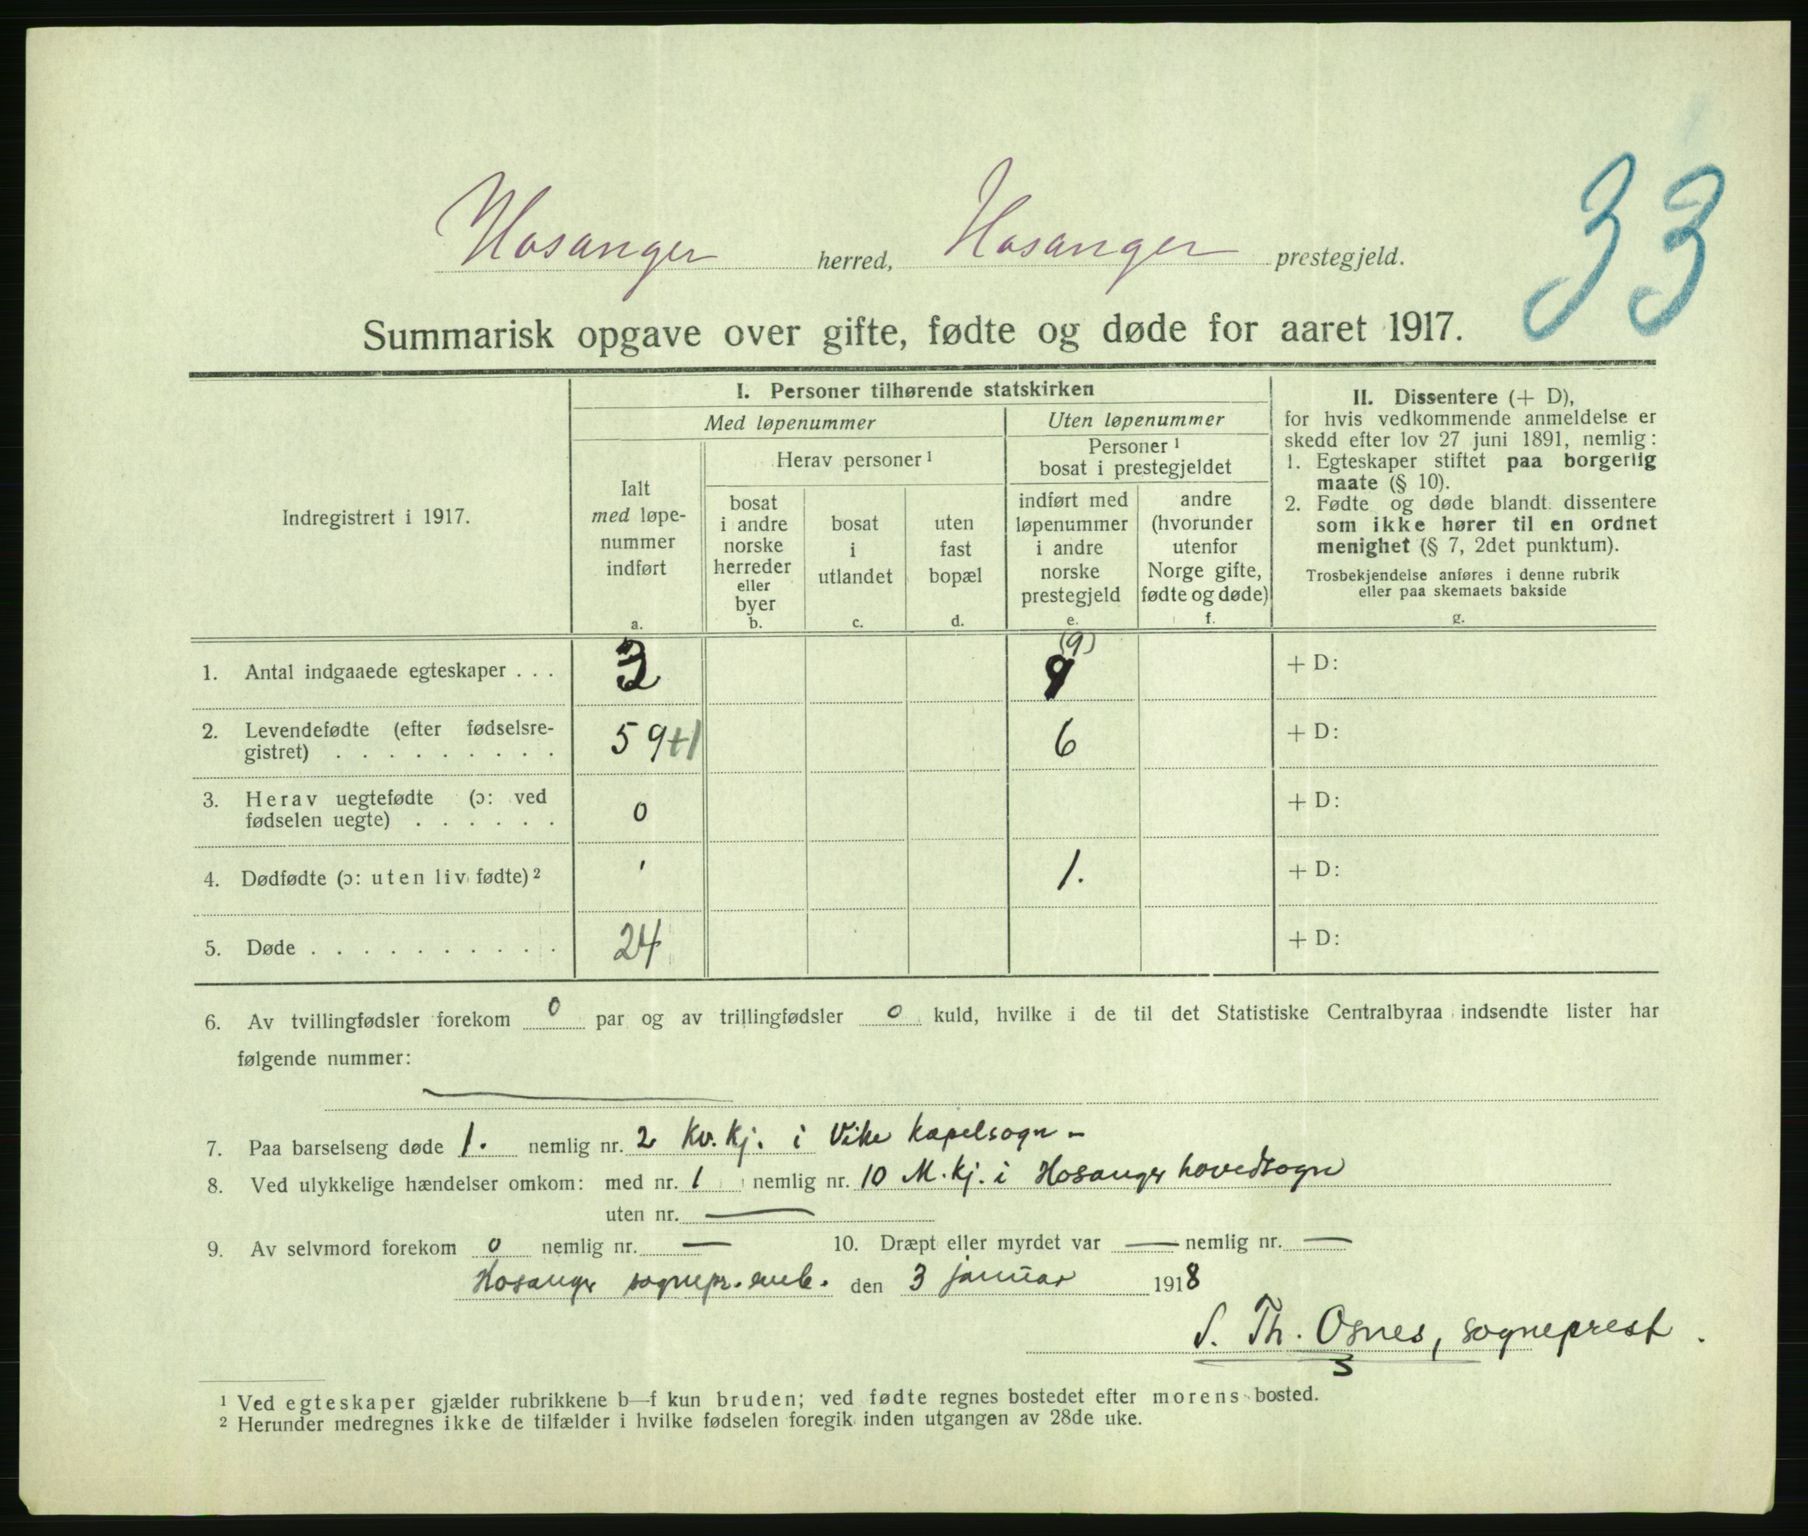 33
Hosanger herred, Hosanger prestegjeld.
Summarisk opgave over gifte, fødte og døde for aaret 1917.
Indregistrert i 1917.
I. Personer tilhørende statskirken
Med løpenummer
Uten løpenummer
Ialt
med løpe-
nummer
indført
a.
Herav personer ¹
bosat
i andre
norske
herreder
eller
byer
b.
bosat
i
utlandet
c.
uten
fast
bopæl
d.
Personer ¹
bosat i prestegjeldet
indført med
løpenummer
i andre
norske
prestegjeld
e.
andre
(hvorunder
utenfor
Norge gifte,
fødte og døde)
f.
II. Dissentere (+ D),
for hvis vedkommende anmeldelse er
skedd efter lov 27 juni 1891, nemlig:
1. Egteskaper stiftet paa borgerlig
maate (§ 10).
2. Fødte og døde blandt dissentere
som ikke hører til en ordnet
menighet (§ 7, 2det punktum).
Trosbekjendelse anføres i denne rubrik
eller paa skemaets bakside
g.
1. Antal indgaaede egteskaper . . . 3 (9) 9 + D:
2. Levendefødte (efter fødselsre-
gistret) . . . . . . . . . 59+1 6 + D:
3. Herav uegtefødte (ɔ: ved
fødselen uegte) . . . . . . 0 + D:
4. Dødfødte (ɔ: uten liv fødte) ² ' 1. + D:
5. Døde . . . . . . . . . . 24 + D:
6. Av tvillingfødsler forekom 0 par og av trillingfødsler 0 kuld, hvilke i de til det Statistiske Centralbyraa indsendte lister har
følgende nummer:
7. Paa barselseng døde 1. nemlig nr. 2 Kv.kj. i Vike kapelsogn –
8. Ved ulykkelige hændelser omkom: med nr. 1 nemlig nr. 10 M.kj. i Hosanger hovedsogn
uten nr. —
9. Av selvmord forekom 0 nemlig nr. — 10. Dræpt eller myrdet var — nemlig nr. —
Hosanger sognepr.emb. den 3 januar 1918
S. Th. Osnes, sogneprest.
3
¹ Ved egteskaper gjælder rubrikkene b—f kun bruden; ved fødte regnes bostedet efter morens bosted.
² Herunder medregnes ikke de tilfælder i hvilke fødselen foregik inden utgangen av 28de uke.